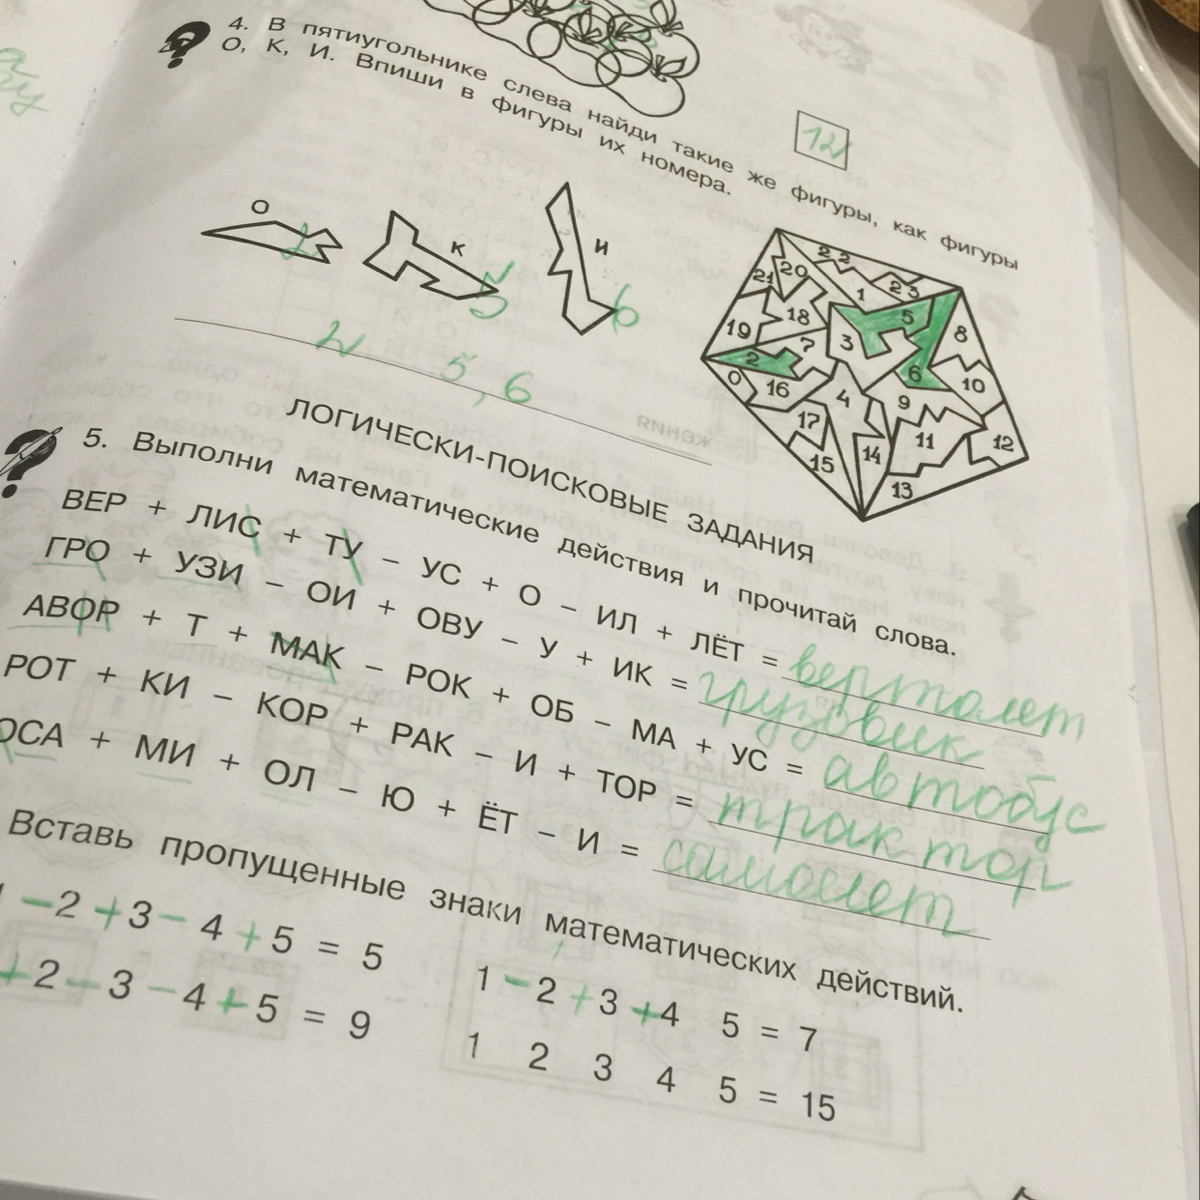 12
4. В пятиугольнике слева найди такие же фигуры, как фигуры
О, К, И. Впиши в фигуры их номера.
О К И
2 5 6
22 21 20 1 23 5 8 18 19 3 7 2 6 10 0 16 4 9 17 11 12 15 14 13
2 5, 6
ЛОГИЧЕСКИ-ПОИСКОВЫЕ ЗАДАНИЯ
5. Выполни математические действия и прочитай слова.
ВЕР + ЛИС + ТУ – УС + О – ИЛ + ЛЁТ = вертолет
ГРО + УЗИ – ОИ + ОВУ – У + ИК = грузовик
АВОР + Т + МАК – РОК + ОБ – МА + УС = автобус
РОТ + КИ – КОР + РАК – И + ТОР = трактор
ОСА + МИ + ОЛ – Ю + ЁТ – И = самолет
Вставь пропущенные знаки математических действий.
– 2 + 3 – 4 + 5 = 5
1 – 2 + 3 + 4 5 = 7
+ 2 – 3 – 4 + 5 = 9
1 2 3 4 5 = 15